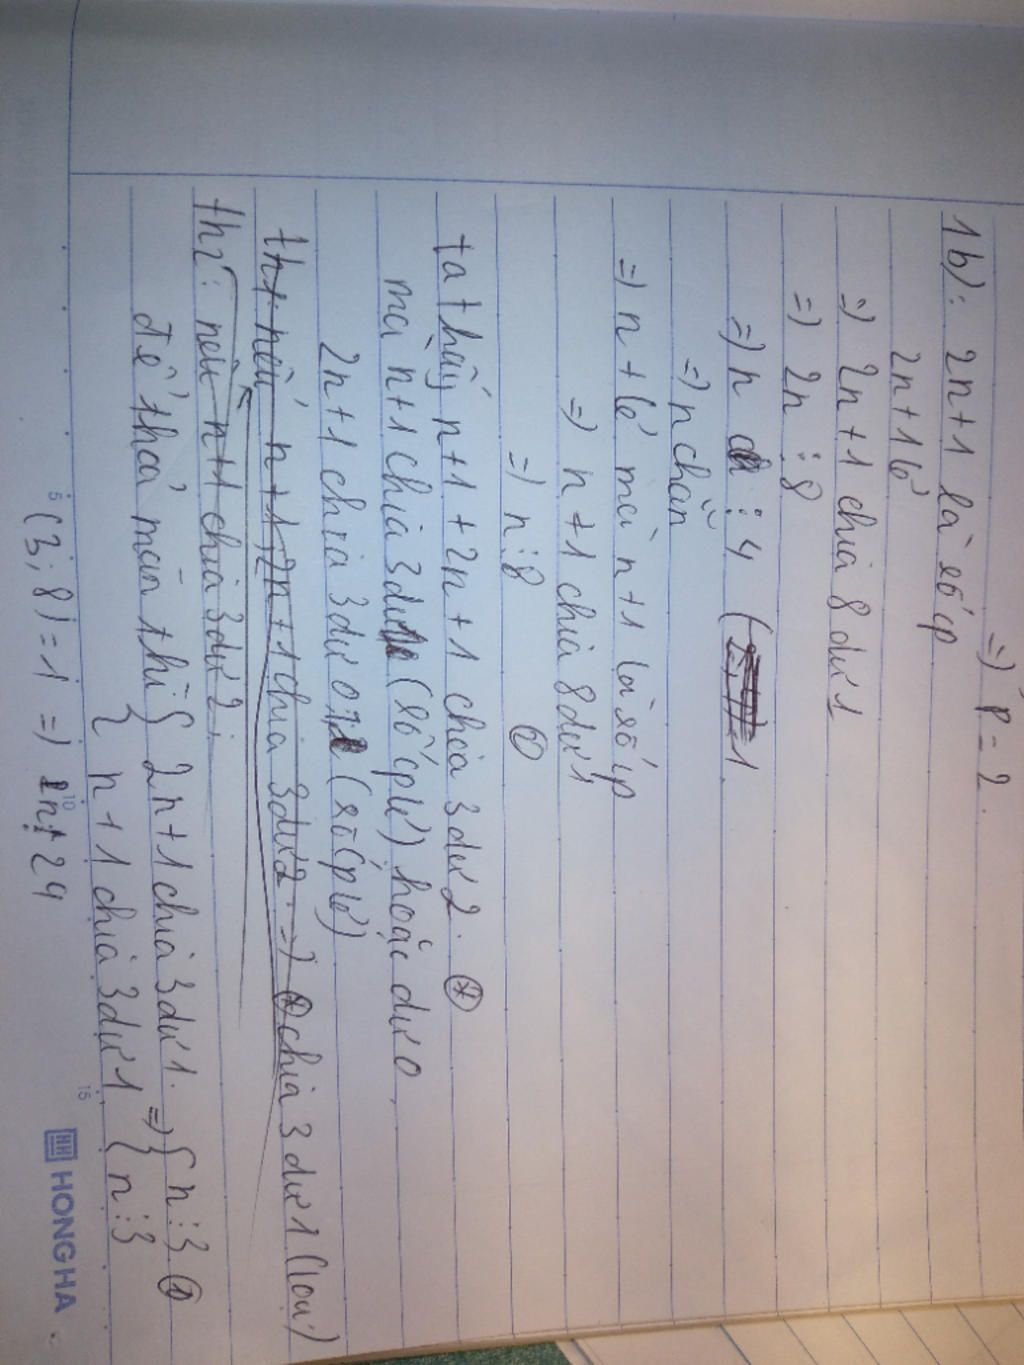 =) p = 2.
1b): 2n+1 là số cp
2n+1 lẻ
=) 2n+1 chia 8 dư 1
=) 2n ⋮ 8
=) n ⋮ 4
=) n chẵn
=) n + lẻ mà n+1 là số cp
=) n+1 chia 8 dư 1
=) n ⋮ 8 (2)
ta thấy n+1 + 2n+1 chia 3 dư 2. (*)
mà n+1 chia 3 dư 1 (số cp lẻ) hoặc dư 0,
2n+1 chia 3 dư 0, 1 (số cp lẻ)
th1: nếu n+1, 2n+1 chia 3 dư 2 =) (*) chia 3 dư 1 (loại)
th2: nếu n+1 chia 3 dư 2;
để thỏa mãn thì { 2n+1 chia 3 dư 1. =) { n ⋮ 3 (1)
{ n+1 chia 3 dư 1 { n ⋮ 3
(3; 8) = 1 =) n ⋮ 24
5
10
15
HONGHA